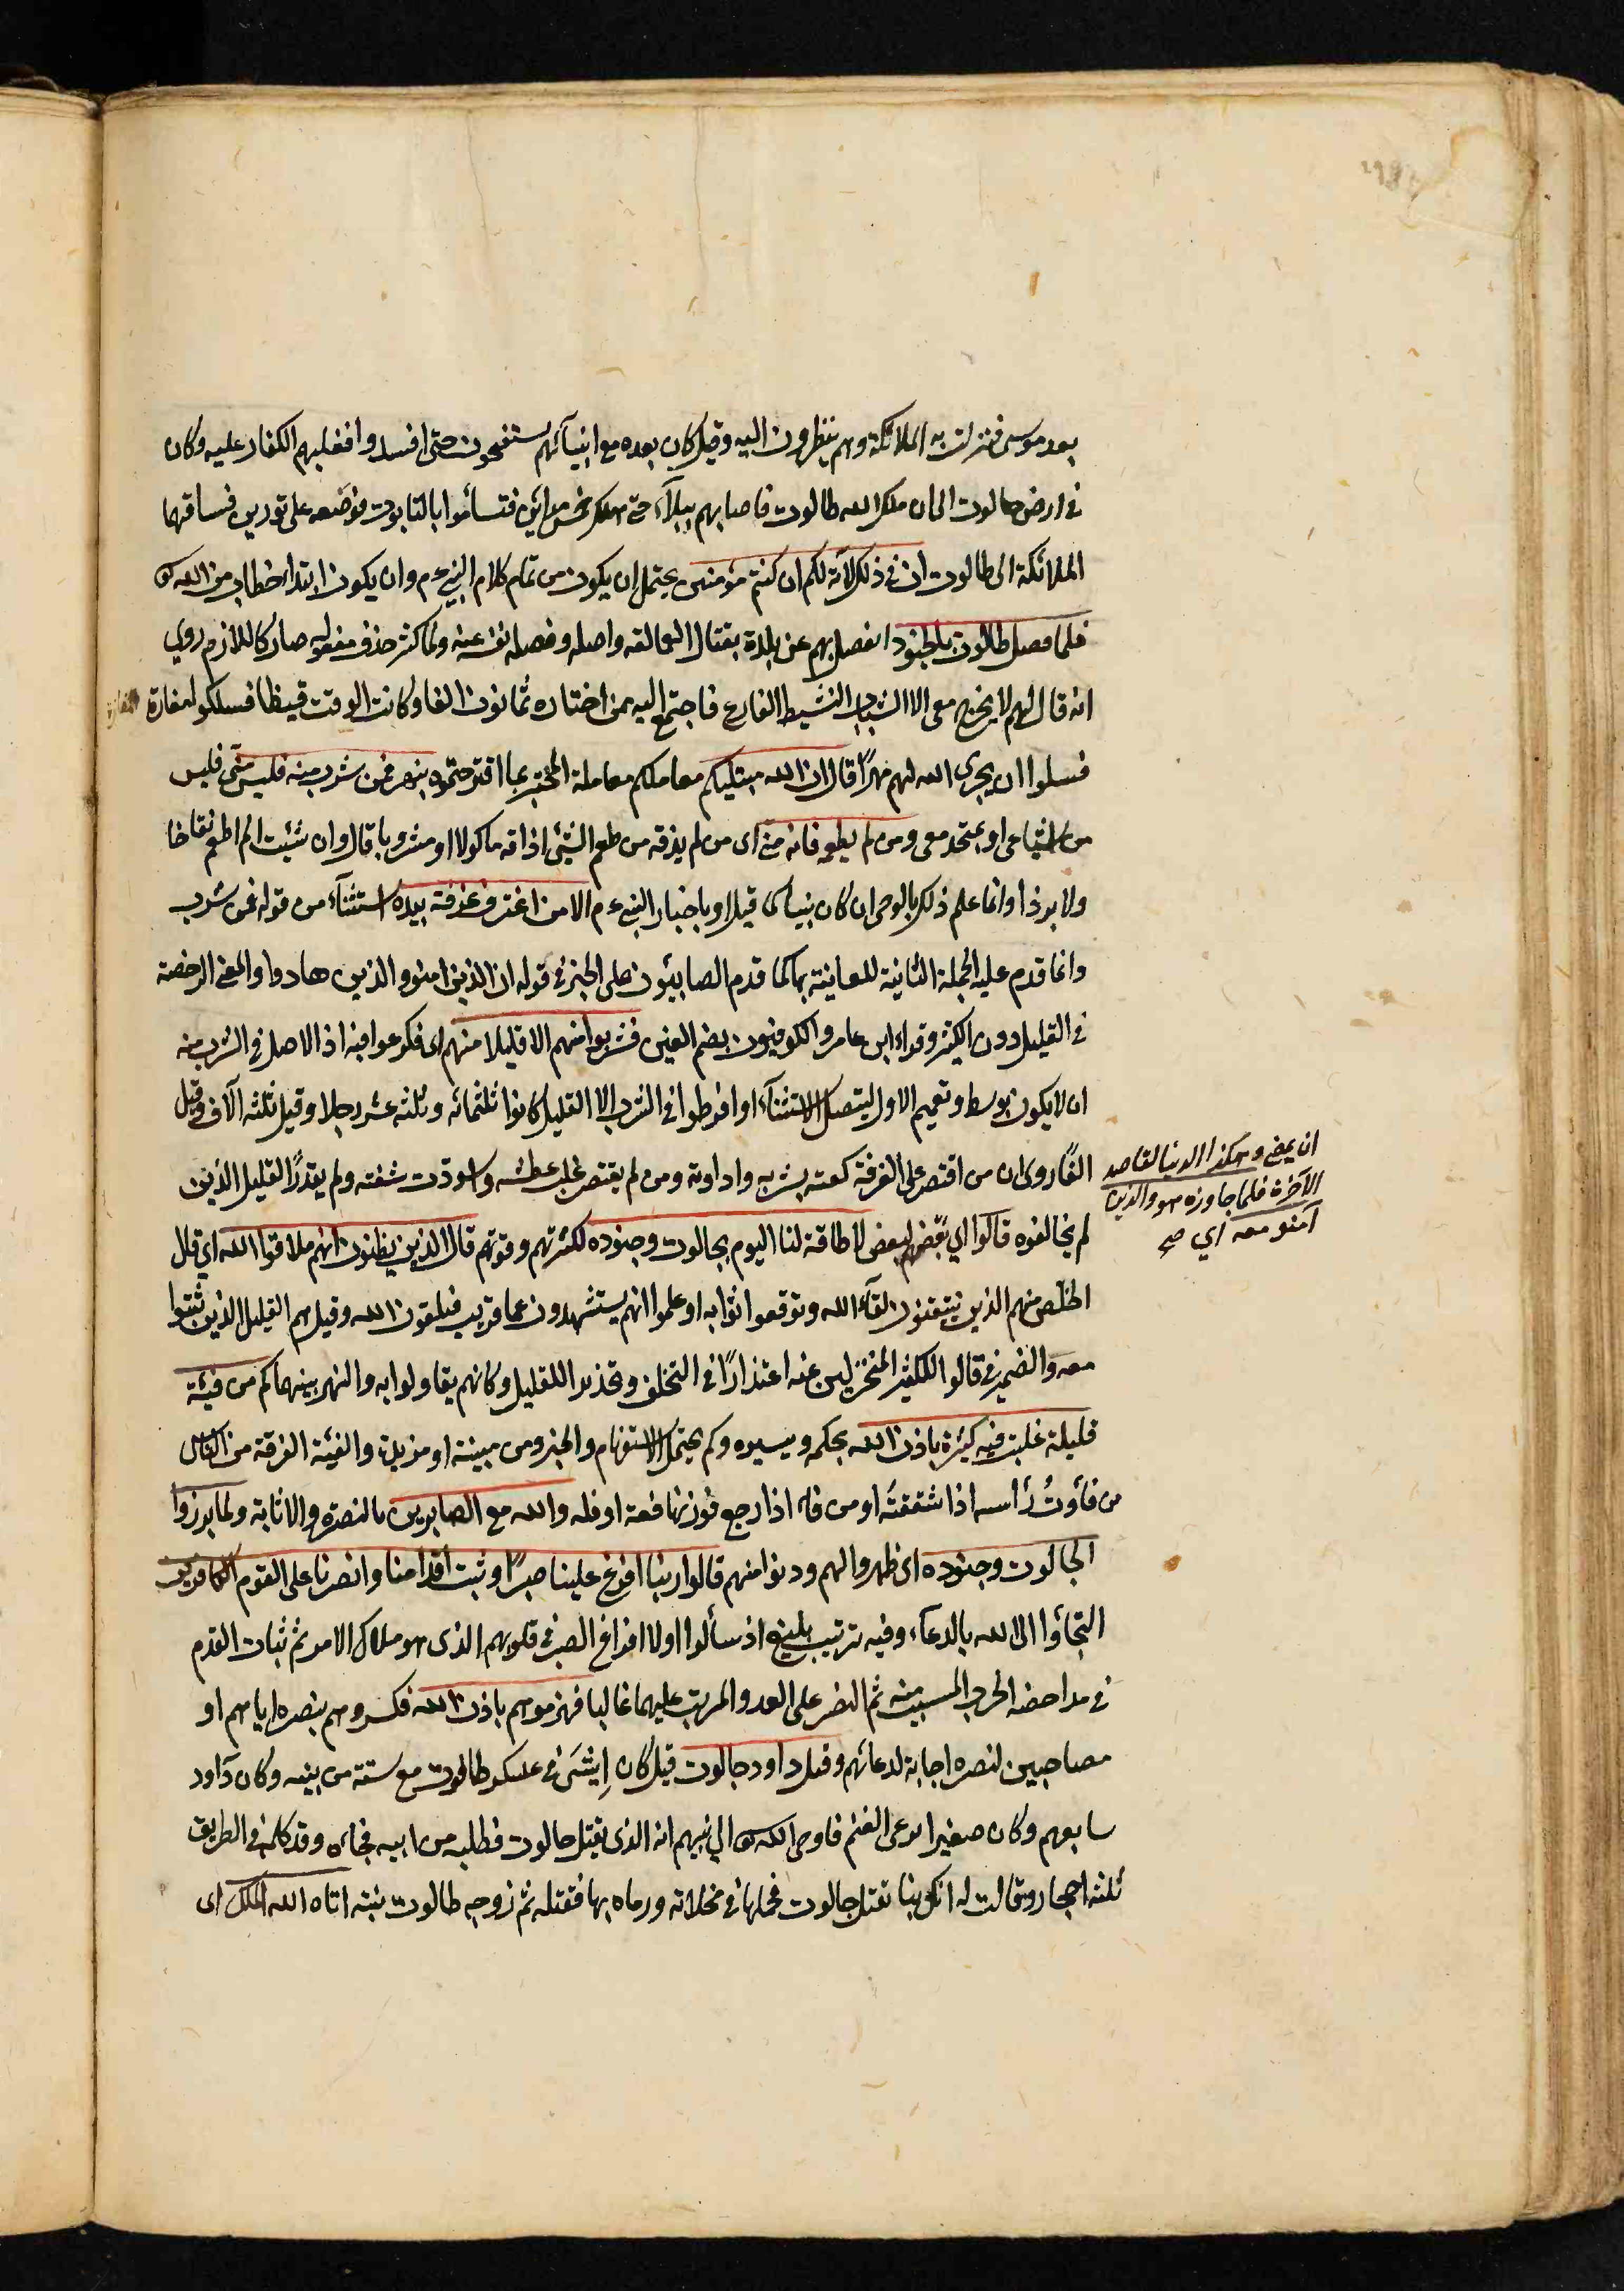 بعد موسى فنزلت به الملائكة وهم ينظرون اليه وقيل كان بعده مع انبيائهم يستفتحون حتى افسدوا فغلبهم الكفار عليه وكان
في ارض جالوت الى ان ملك الله طالوت فاصابهم ببلاء حتى هلكت خمس مدائن فتشأموا بالتابوت فوضعه على ثورين فساقهما
الملائكة الى طالوت ان في ذلك لآية لكم ان كنتم مؤمنين يحتمل ان يكون من تمام كلام النبي ءم وان يكون ابتداء خطاب من الله تع
فلما فصل طالوت بالجنود انفصل بهم عن بلده بقتال العمالقه واصله فصل نفسه عنه ولما كثر حذف مفعوله صار كاللازم روي
انه قال لهم لا يخرج معى الا الشاب النشيط الفارع فاجتمع اليه ممن اختاره ثمانون الفا وكانت الوقت قيظا فسلكوا مفازة
فسلوا ان يجرى الله لهم نهرا قال ان الله مبتليكم معاملكم معاملة المختبر بما اقترحتموه بنهر فمن شرب منه فليس منى فليس
من اشياعى او بمتحد معى ومن لم يطعمه فانه منى اى من لم يذقه من طعم الشئ اذا ذاقه ماكولا او مشروبا قال وان شئت لم اطعم نقاخا
ولا بردا وانما علم ذلك بالوحى ان كان نبيا كما قيل او باخبار النبي ءم الا من اغترف غرفة بيده استثناء من قوله فمن شرب
وانما قدم عليه الجملة الثانية للعناية بها كما قدم الصابئون على الخبر في قوله ان الذين امنو والذين هادوا والمعنى الرخصة
في القليل دون الكثير وقراء ابن عامر والكوفيون بضم الغين فشربوا منهم الا قليلا منهم اى فكرعوا فيه اذ الاصل في الشرب منه
ان لا يكون بوسط وتعميم الاول ليتصل الاستثناء او افرطوا في الشرب الا القليل كانوا ثلثمائه وثلثه عشر رجلا وقيل ثلثه آلاف وقيل
الفا روى ان من اقتصر على الغرفة كفته بشربه واداوته ومن لم يقتصر غلب عطشه واسودت شفته ولم يقدر القليل الذين
ان يمضى وهكذا الدنيا لقاصد
الآخرة فلما جاوزه هو والذين
آمنو معه اي صح
لم يخالفوه قالوا اي بعضهم لبعض لا طاقة لنا اليوم بجالوت وجنوده لكثرتهم وقوتهم قال الذين يظنون انهم ملاقوا الله اي قال
الخلص منهم الذين يتيقنون لقاء الله وتوقعوا ثوابه او علموا انهم يستشهدون عما قريب فيلقون الله وقيل هم القليل الذين ثبتوا
معه والضمير في قالوا للكثير المنخزلين عنه اعتذارا في التخلف وتخذيرا للقليل وكانهم يقاولوا به والنهر بينهما كم من فيئة
قليلة غلبت فيه كثيرة باذن الله بحكمه وتيسيره وكم يحتمل الاستفهام والخبر ومن مبينة او مزيدة والفيئة الفرقة من الناس
من فأوت رأسه اذا شققته او من فاء اذا رجع فوزنها فعة او فله والله مع الصابرين بالنصرة والاثابة ولما برزوا
لجالوت وجنوده اى ظهروا لهم ودنوا منهم قالوا ربنا افرغ علينا صبرا وثبت اقدامنا وانصرنا على القوم الكافرين
التجأوا الى الله بالدعاء وفيه ترتيب بليغ اذ سألوا اولا افراغ الصبر في قلوبهم الذى هو ملاك الامر ثم ثبات القدم
في مداحضه الحرب المسبب منه ثم النصر على العدو المرتب عليهما غالبا فهزموهم باذن الله فكسروهم بنصره اياهم او
مصاحبين لنصره اجابة لدعائهم وقتل داود جالوت قيل كان ايشى في عسكر طالوت مع ستة من بنيه وكان داود
سابعهم وكان صغيرا يرعى الغنم فاوحى الله تع الى نبيهم انه الذى يقتل جالوت فطلبه من ابيه فجاءه وقد كلمه في الطريق
ثلثه احجار وقالت له انك بنا تقتل جالوت فحملها في مخلاته ورماه بها فقتله ثم زوجه طالوت بنته اتاه الله الملك اى